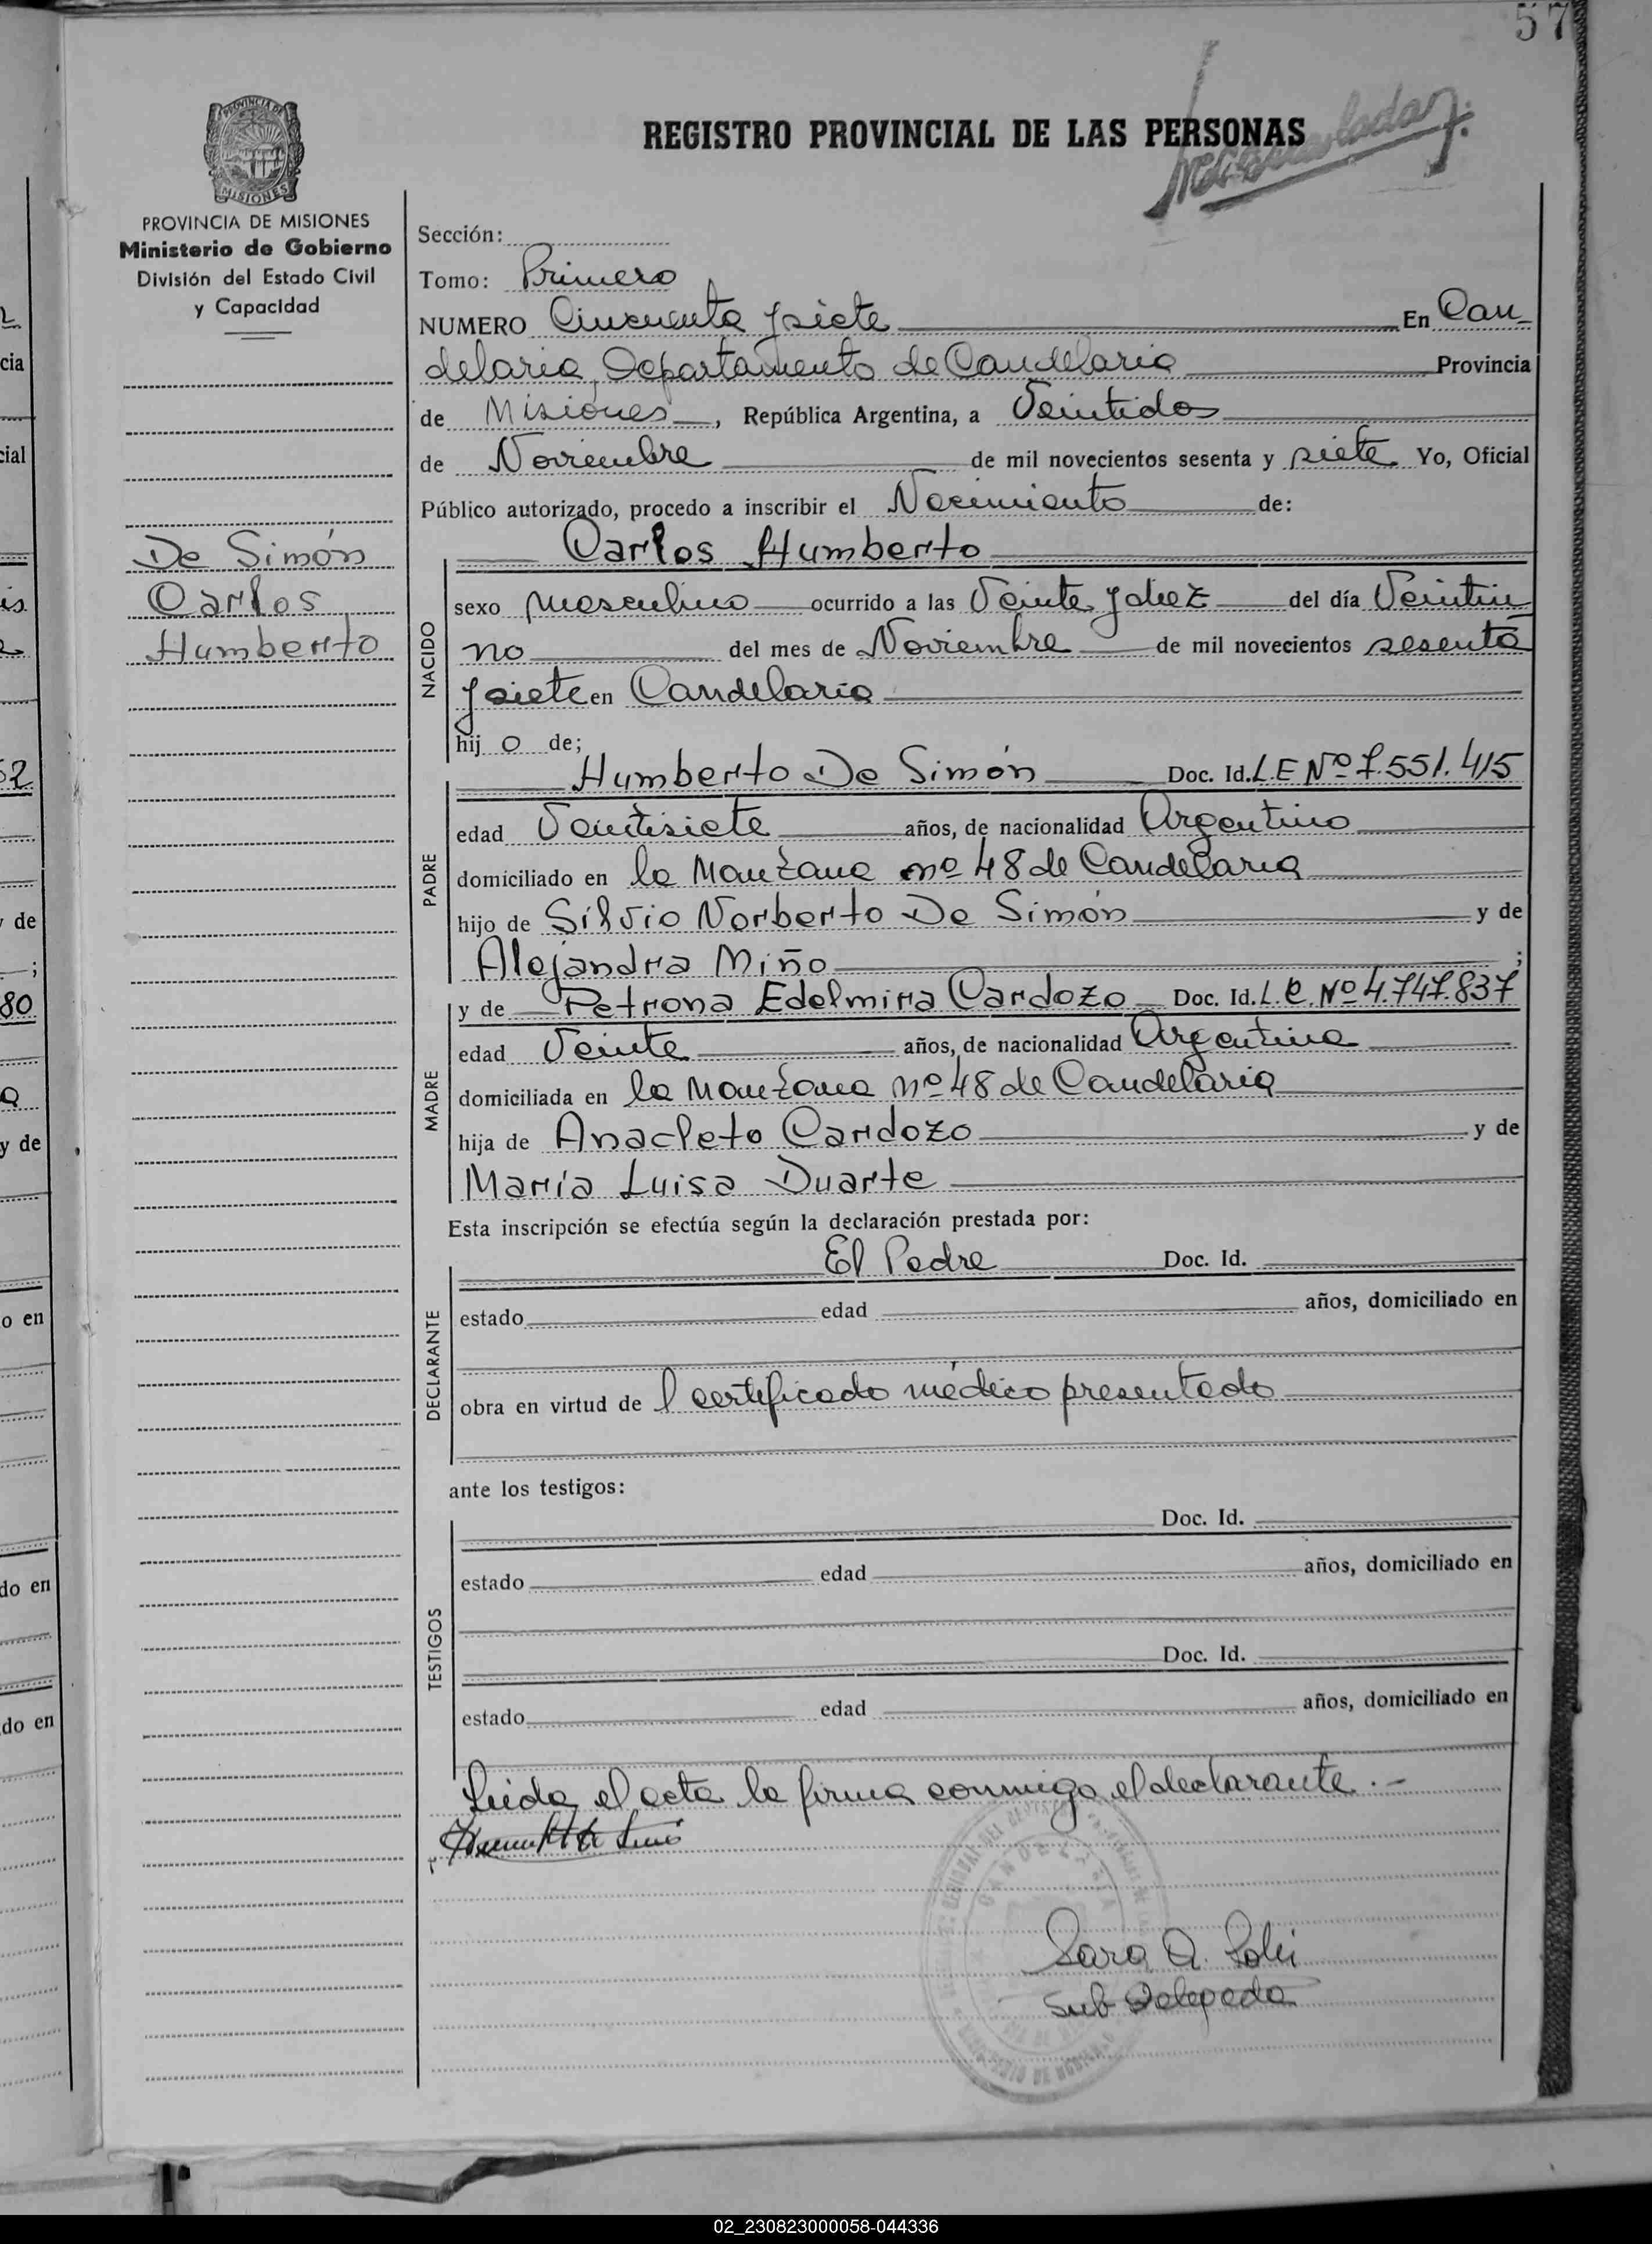 57
PROVINCIA DE
MISIONES
PROVINCIA DE MISIONES
Ministerio de Gobierno
División del Estado Civil
y Capacidad
De Simón
Carlos
Humberto
REGISTRO PROVINCIAL DE LAS PERSONAS
Sección:
Tomo: Primero
NUMERO Cincuenta y siete En Can-
delaria, Departamento de Candelaria Provincia
de Misiones, República Argentina, a Veintidos
de Noviembre de mil novecientos sesenta y siete Yo, Oficial
Público autorizado, procedo a inscribir el Nacimiento de:
Carlos Humberto
NACIDO
sexo masculino ocurrido a las Veinte y diez del día Veintiu
no del mes de Noviembre de mil novecientos sesenta
y siete en Candelaria
hij o de;
PADRE
Humberto De Simón Doc. Id. L.E Nº 7.551.415
edad Veintisiete años, de nacionalidad Argentino
domiciliado en la Manzana nº 48 de Candelaria
hijo de Silvio Norberto De Simón y de
Alejandra Miño ;
MADRE
y de Petrona Edelmira Cardozo Doc. Id. L.C. Nº 4.747.837
edad Veinte años, de nacionalidad Argentina
domiciliada en la Manzana nº 48 de Candelaria
hija de Anacleto Cardozo y de
María Luisa Duarte
Esta inscripción se efectúa según la declaración prestada por:
DECLARANTE
El Padre Doc. Id.
estado edad años, domiciliado en
obra en virtud de l certificado médico presentado
ante los testigos:
TESTIGOS
Doc. Id.
estado edad años, domiciliado en
Doc. Id.
estado edad años, domiciliado en
Leida el acta la firma conmigo el declarante.-
CANDELARIA
Sara A.
Sub Delegada
02_230823000058-044336